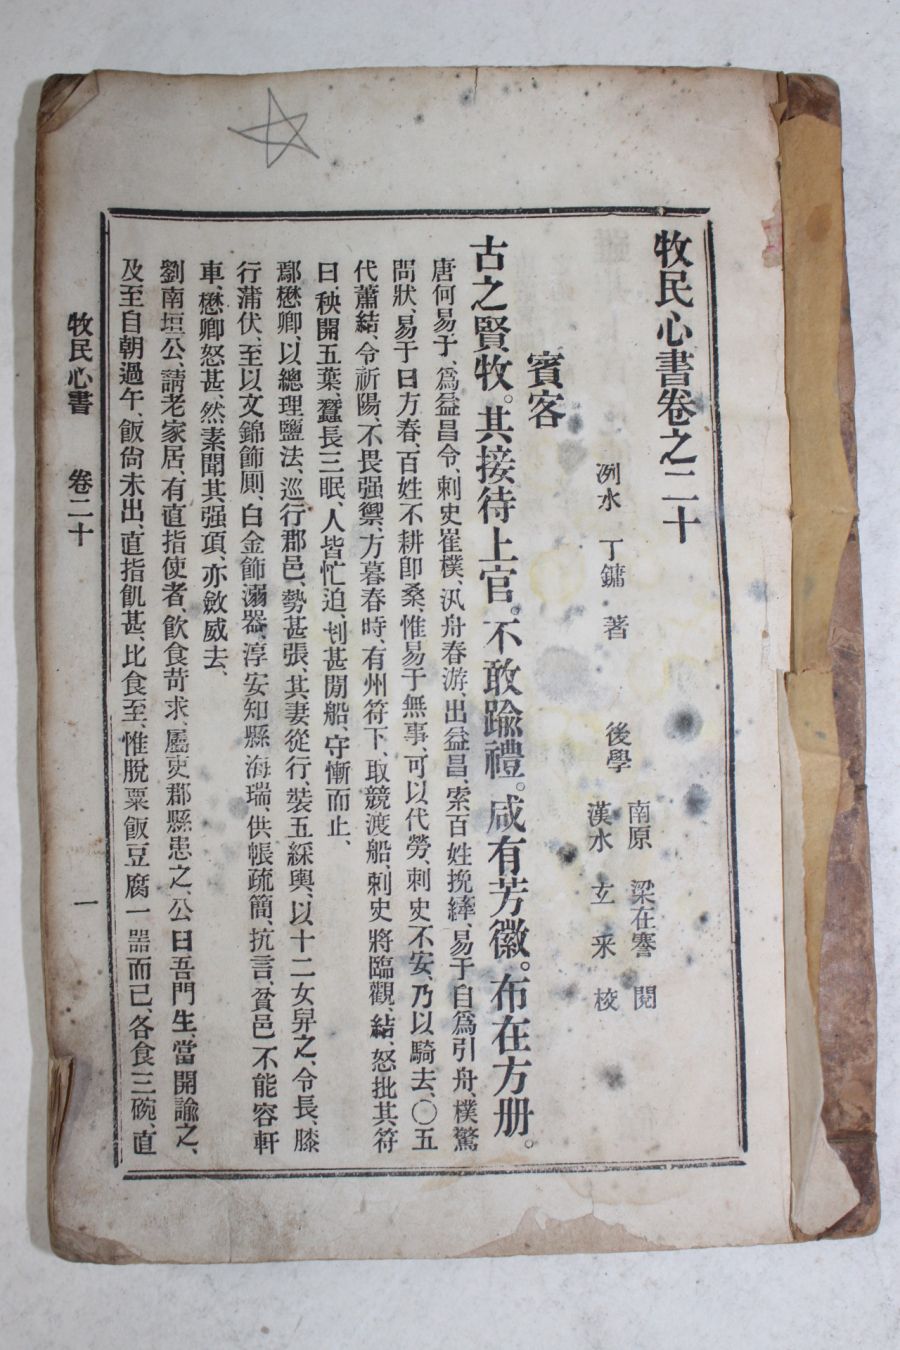 牧民心書卷之二十
洌水 丁鏞 著
後學
南原 梁在謇 閱
漢水 玄采 校
賓客
古之賢牧。其接待上官。不敢踰禮。咸有芳徽。布在方册。
唐何易于、爲益昌令、刺史崔樸、汎舟春游、出益昌、索百姓挽縴、易于自爲引舟、樸驚
問狀、易于曰方春、百姓不耕卽桑、惟易于無事、可以代勞、刺史不安、乃以騎去、〇五
代蕭結、令祈陽、不畏强禦、方暮春時、有州符下、取競渡船、刺史將臨觀、結、怒批其符
曰、秧開五葉、蠶長三眠、人皆忙迫、刬甚閒船、守慚而止、
鄢懋卿、以總理鹽法、巡行郡邑、勢甚張、其妻從行、裝五綵輿、以十二女舁之、令長、膝
行蒲伏、至以文錦飾厠、白金飾溺器、淳安知縣海瑞、供帳疏簡、抗言、貧邑不能容軒
車、懋卿怒甚、然素聞其强項、亦斂威去、
劉南垣公、請老家居、有直指使者、飮食苛求、屬吏郡縣患之、公曰吾門生、當開諭之、
及至自朝過午、飯尙未出、直指飢甚、比食至、惟脫粟飯豆腐一器而已、各食三碗、直
牧民心書 卷二十 一